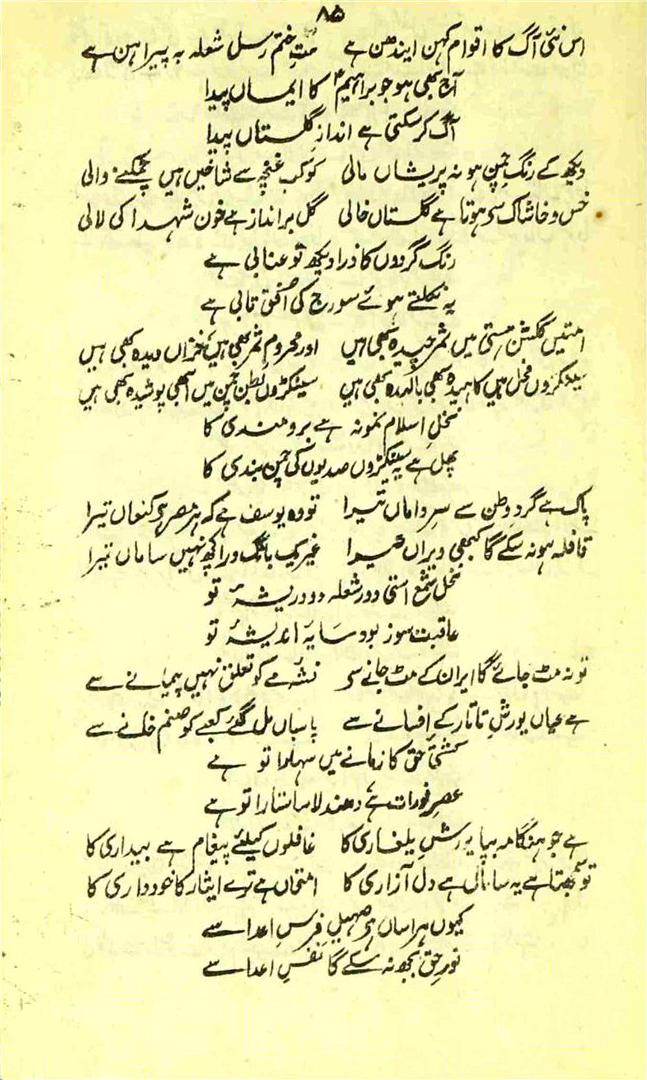 ۸۵
اس نئی آگ کا اقوام کہن ایندھن ہے ملتِ ختم رسل شعلہ بہ پیراہن ہے
آج بھی ہو جو براہیمؑ کا ایماں پیدا
آگ کر سکتی ہے اندازِ گلستاں پیدا
دیکھ کے رنگِ چمن ہو نہ پریشاں مالی کوکبِ غنچہ سے شاخیں ہیں چمکنے والی
خس و خاشاک سے ہوتا ہے گلستاں خالی گل بر انداز ہے خون شہدا کی لالی
رنگ گردوں کا ذرا دیکھ تو عنابی ہے
یہ نکلتے ہوئے سورج کی افق تابی ہے
امتیں گلشن ہستی میں ثمر چیدہ بھی ہیں اور محروم ثمر بھی ہیں خزاں دیدہ بھی ہیں
سینکڑوں نخل ہیں کاہیدہ بھی بالیدہ بھی ہیں سینکڑوں بطن چمن میں ابھی پوشیدہ بھی ہیں
نخل اسلام نمونہ ہے برومندی کا
پھل ہے یہ سینکڑوں صدیوں کی چمن بندی کا
پاک ہے گردِ وطن سے سرِ داماں تیرا تو وہ یوسف ہے کہ ہر مصر ہے کنعاں تیرا
قافلہ ہو نہ سکے گا کبھی ویراں تیرا غیر یک بانگ درا کچھ نہیں ساماں تیرا
نخل شمع استی و در شعلہ دود ریشۂ تو
عاقبت سوز بود سایۂ اندیشۂ تو
تو نہ مٹ جائے گا ایران کے مٹ جانے سے نشۂ مے کو تعلق نہیں پیمانے سے
ہے عیاں یورشِ تاتار کے افسانے سے پاسباں مل گئے کعبے کو صنم خانے سے
کشتئ حق کا زمانے میں سہارا تو ہے
عصرِ نو رات ہے دھندلا سا ستارا تو ہے
ہے جو ہنگامہ بپا یورشِ بلغاری کا غافلوں کیلئے پیغام ہے بیداری کا
تو سمجھتا ہے یہ ساماں ہے دل آزاری کا امتحاں ہے ترے ایثار کا خود داری کا
کیوں ہراساں ہے صہیلِ فرسِ اعدا سے
نورِ حق بجھ نہ سکے گا نفسِ اعدا سے